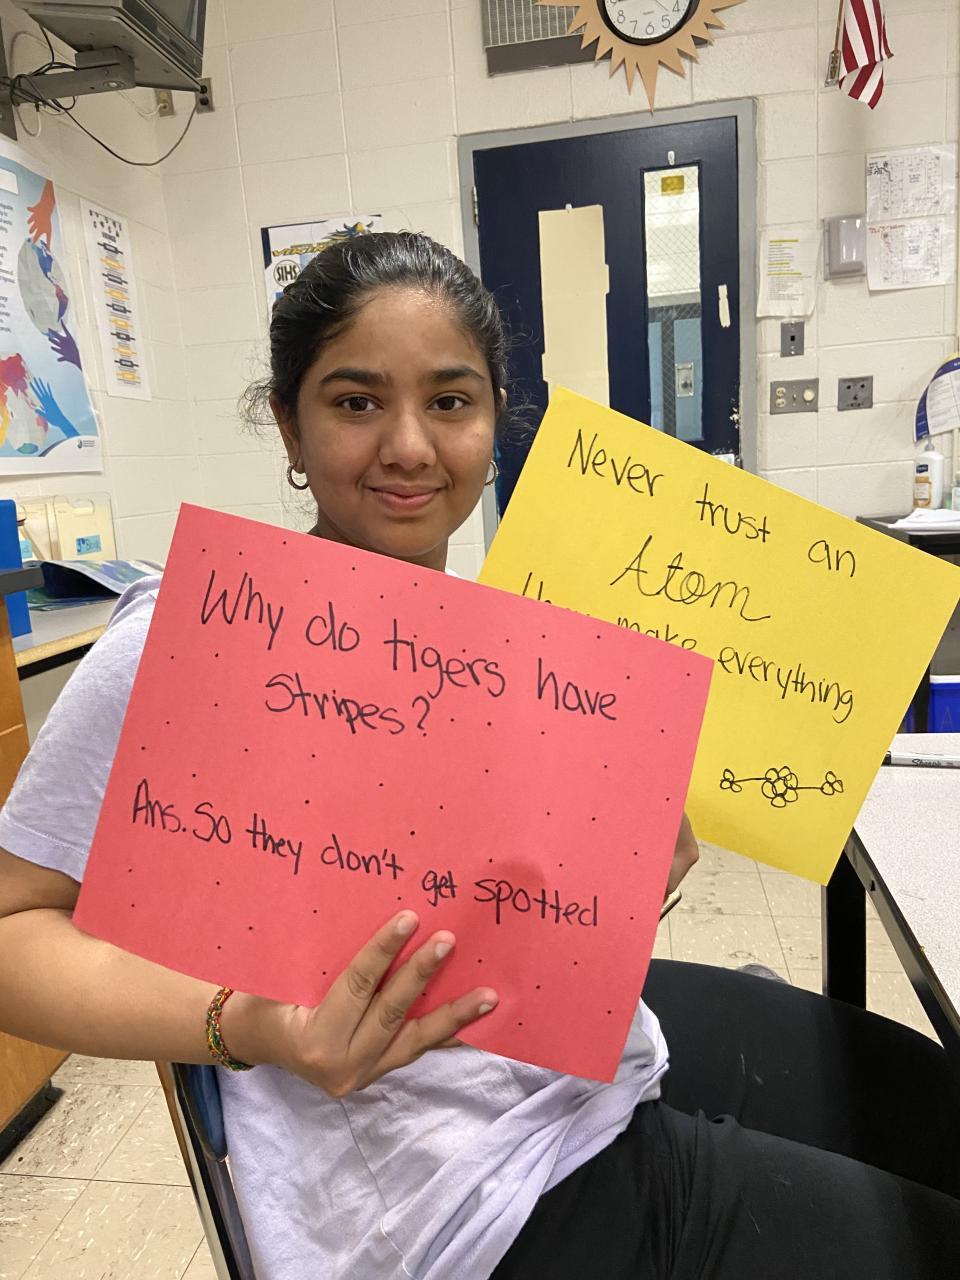 Why do tigers have
Stripes?
Ans. So they don't get spotted
Never trust an
Atom
they make everything
SIHS